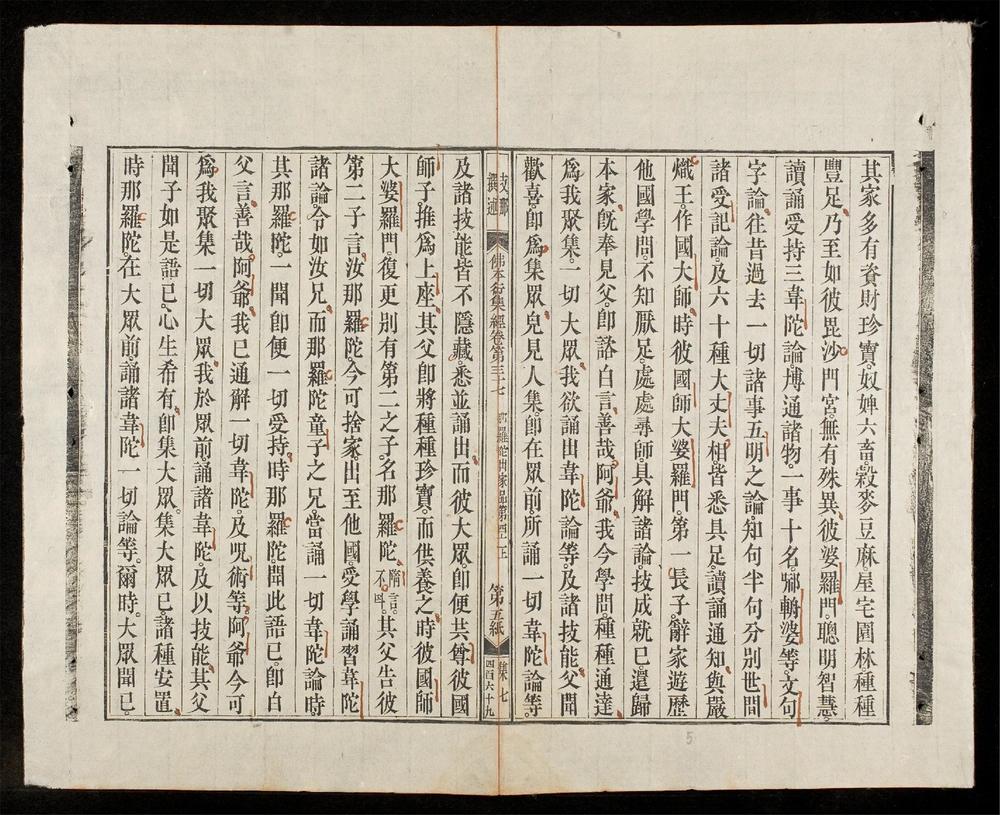 其家多有資財珍寶。奴婢六畜。穀麥豆麻。屋宅園林。種種
豐足。乃至如彼毘沙門宮。無有殊異。彼婆羅門。聰明智慧。
讀誦受持三韋陀論。博通諸物。一事十名。娜軜婆等。文句
字論。往昔過去一切諸事五明之論。知句半句分別世間
諸受記論。及六十種大丈夫相。皆悉具足。讀誦通知。與嚴
熾王作國大師。時彼國師大婆羅門。第一長子。辭家遊歷
他國學問。不知厭足。處處尋師。具解諸論。技成就已。還歸
本家。旣奉見父。卽諮白言。善哉阿爺。我今學問種種通達。
爲我聚集一切大眾。我欲誦出韋陀論等。及諸技能。父聞
歡喜。卽爲集眾。兒見人集。卽在眾前。所誦一切韋陀論等。
支那
撰述
佛本行集經卷第三十七
那羅陀出家品第四十一下
第五紙
四百六十九
及諸技能。皆不隱藏。悉並誦出。而彼大眾。卽便共尊彼國
師子。推爲上座。其父卽將種種珍寶。而供養之。時彼國師
大婆羅門。復更別有第二之子。名那羅陀。隋言。不叫。其父告彼
第二子言。汝那羅陀。今可捨家。出至他國。受學誦習韋陀
諸論。令如汝兄。而那羅陀童子之兄。當誦一切韋陀論時。
其那羅陀。一聞卽便一切受持。時那羅陀。聞此語已。卽白
父言。善哉阿爺。我已通解一切韋陀。及呪術等。阿爺今可
爲我聚集一切大眾。我於眾前。誦諸韋陀。及以技能。其父
聞子如是語已。心生希有。卽集大眾。集大眾已。諸種安置。
時那羅陀。在大眾前。誦諸韋陀一切論等。爾時。大眾聞已。
5